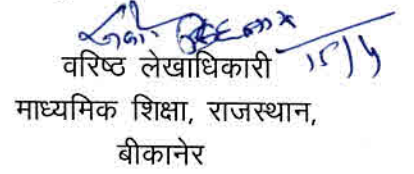 15/4
वरिष्ठ लेखाधिकारी
माध्यमिक शिक्षा, राजस्थान,
बीकानेर